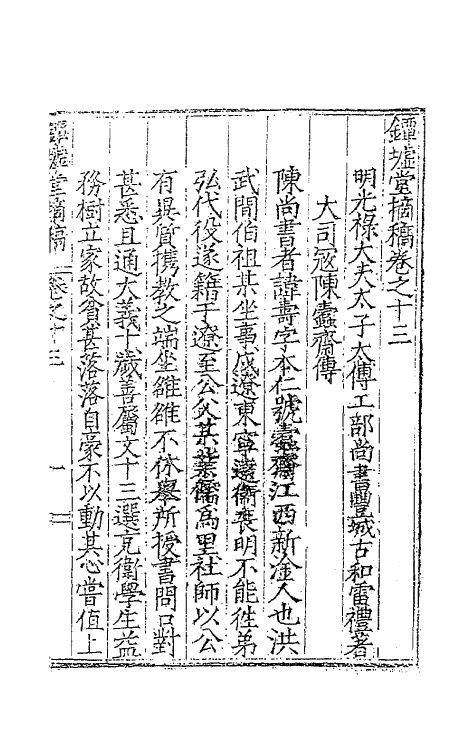 鐔墟堂摘稿卷之十三
明光祿大夫太子太傅工部尚書豐城古和雷禮著
大司寇陳蠹齋傳
陳尚書者諱壽字本仁號蠹齋江西新淦人也洪
武間伯祖某坐事戍遼東寧遠衛喪明不能徃弟
弘代役遂籍于遼至公父某業儒爲里社師以公
有異質携教之端坐雒雒不休舉所授書問口對
甚悉且通大義十歲善屬文十三選充衛學生益
務樹立家故貧甚落落自豪不以動其心嘗值上
鐔墟堂摘稿 卷之十三 一